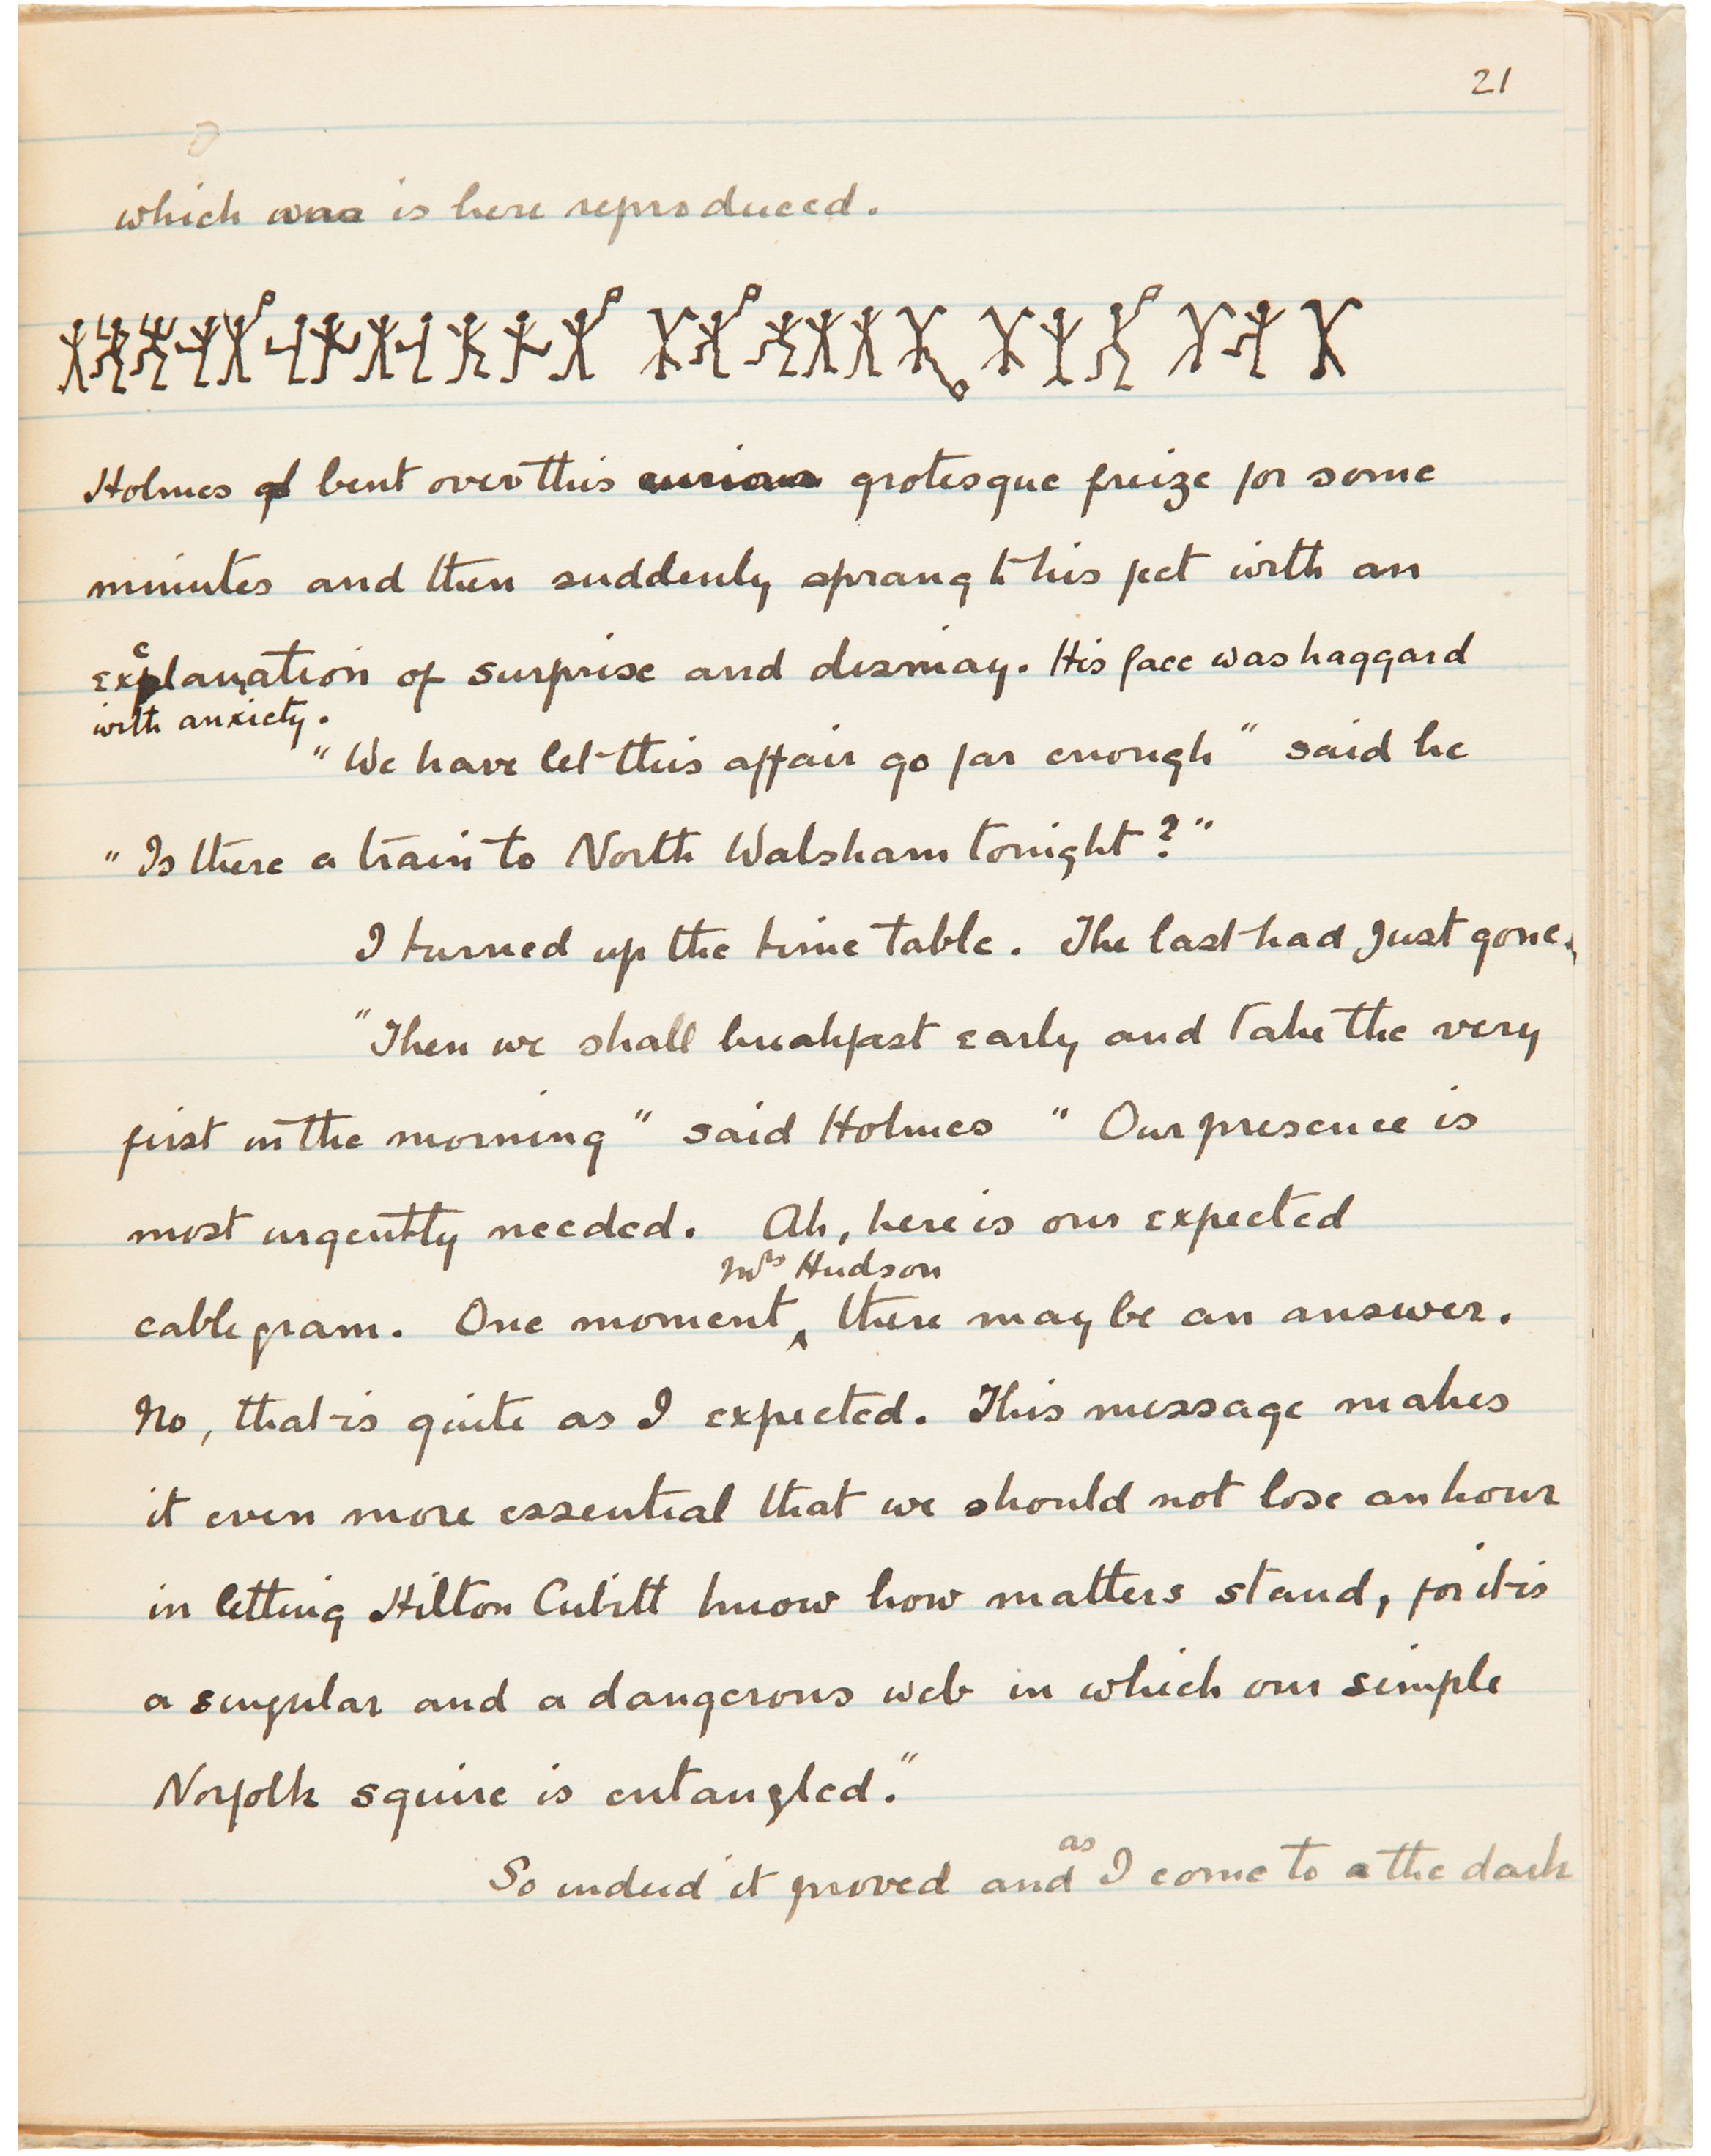 21
which was is here reproduced.
Holmes bent over this curious grotesque freize for some
minutes and then suddenly sprang to his feet with an
exclamation of surprise and dismay. His face was haggard
with anxiety.
"We have let this affair go far enough" said he
"Is there a train to North Walsham tonight?"
I turned up the time table. The last had just gone.
"Then we shall breakfast early and take the very
first in the morning" said Holmes "Our presence is
most urgently needed. Ah, here is our expected
Mrs Hudson
cablegram. One moment, there may be an answer.
No, that is quite as I expected. This message makes
it even more essential that we should not lose an hour
in letting Hilton Cubitt know how matters stand, for it is
a singular and a dangerous web in which our simple
Norfolk squire is entangled."
as
So indeed it proved and I come to a the dark